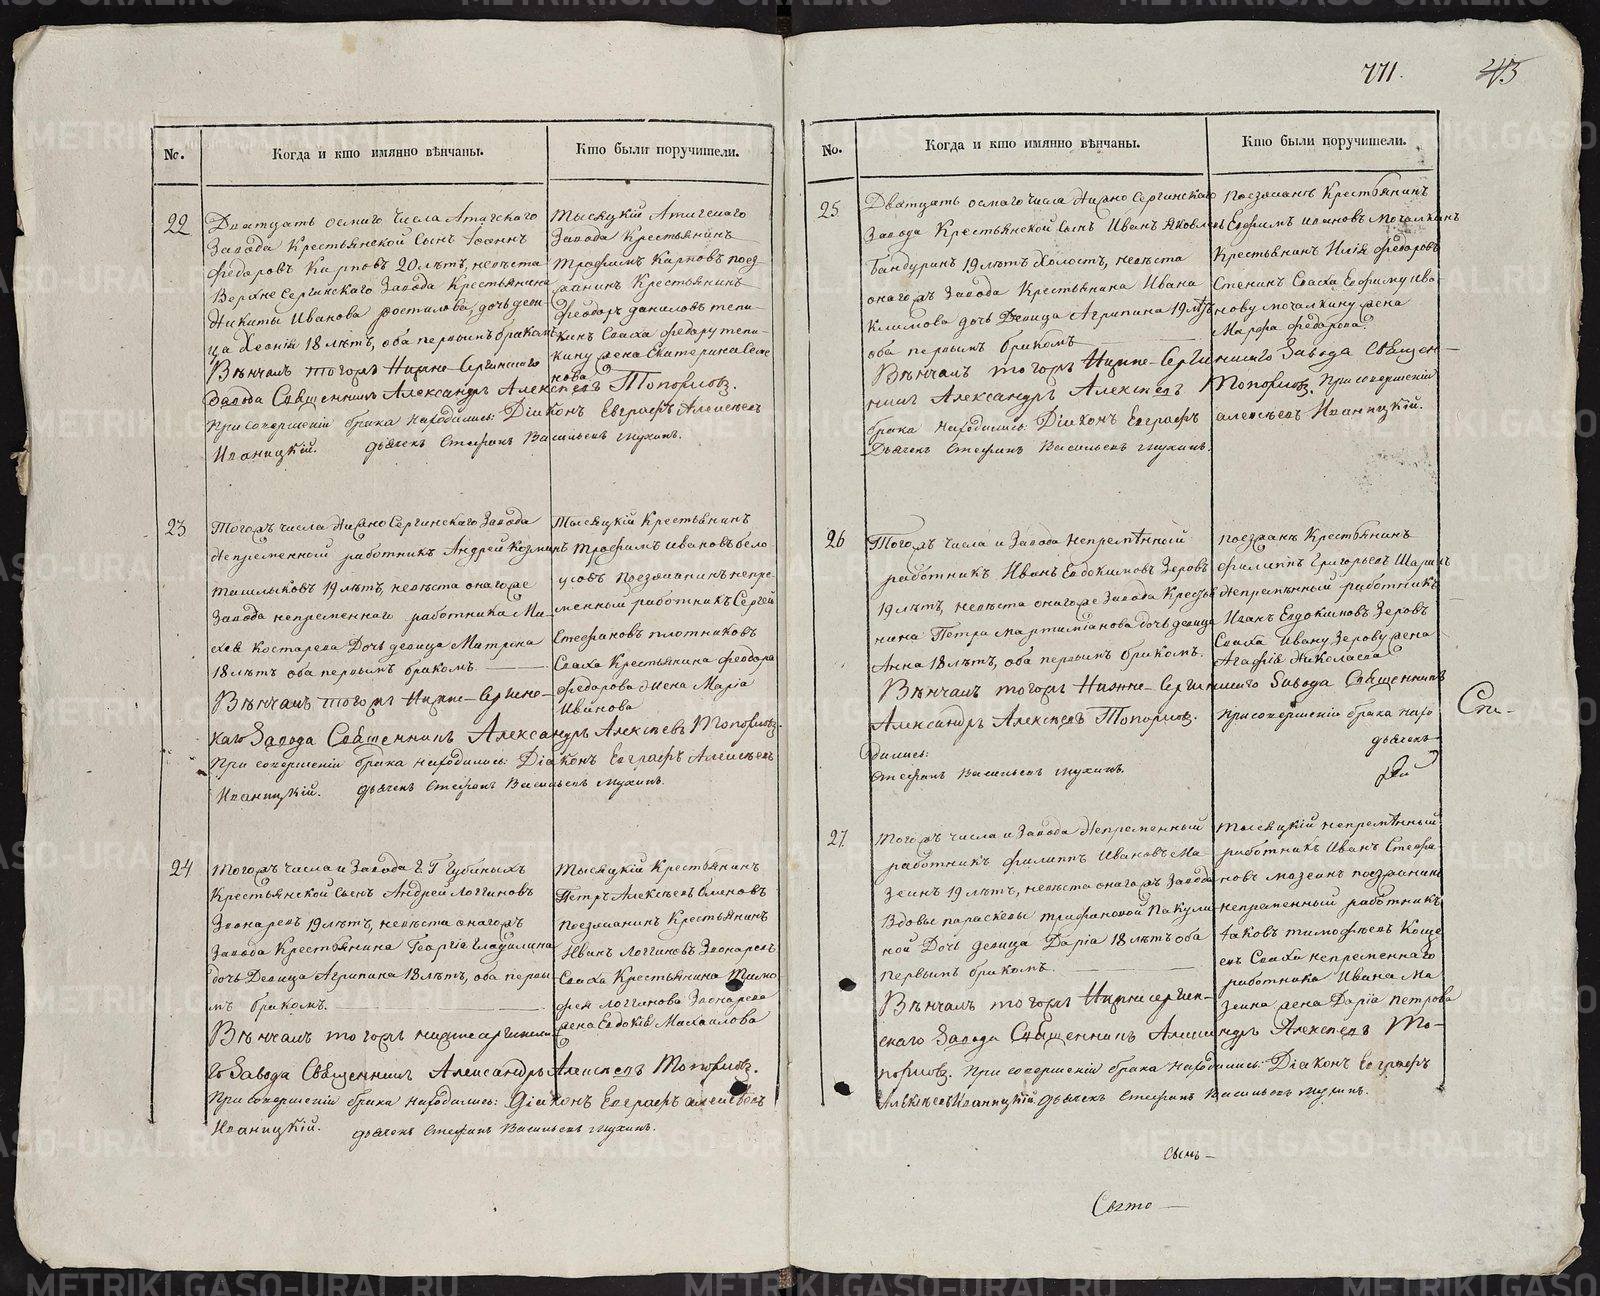 771.
43
No.
Когда и кто имянно вѣнчаны.
Кто были поручители.
22
Двятцать осмаго числа Атигскаго
Завода Крестьянской Сынъ Іоаннъ
Федоровъ Карповъ 20 лѣтъ, невѣста
Верхне Сергинскаго Завода Крестьянина
Никиты Иванова дочь деви-
ца 18 лѣтъ, оба первымъ бракомъ
Вѣнчалъ тогожъ Нижне-Сергинскаго
Завода Священникъ Александръ Алексѣевъ Топорковъ.
При совершеніи брака находились: Діаконъ Евграфъ Алексѣевъ
Иваницкій. дьячекъ Стефанъ Васильевъ Мухинъ.
Тысяцкій Атигскаго
Завода Крестьянинъ
Трофимъ Карповъ поез-
жанинъ Крестьянинъ
Феодоръ Даниловъ Тепи-
кинъ Сваха Федору Тепи-
кину жена Екатерина Семе
нова
23
Тогожъ числа Нижно Сергинскаго Завода
Непременной работникъ Андрей Козминъ
19 лѣтъ, невѣста онагоже
Завода непременнаго работника Ми-
хея Костарева Дочь девица Матрена
18 лѣтъ оба первымъ бракомъ.
Вѣнчалъ тогожъ Нижне-Сергинс-
каго Завода Священникъ Александръ Алексѣевъ Топорковъ
При совершеніи брака находились: Діаконъ Евграфъ Алексѣевъ
Иваницкій. дьячекъ Стефанъ Васильевъ Мухинъ.
Тысяцкій Крестьянинъ
Трофимъ Ивановъ Бело
усовъ Поезжанинъ непре-
менный работникъ Сергей
Стефановъ Плотниковъ
Сваха Крестьянина Феодора
Федорова жена Марія
Иванова
24
Тогожъ числа и Завода Г Г Губиныхъ
Крестьянской Сынъ Андрей Логгиновъ
Звонаревъ 19 лѣтъ, невѣста онагожъ
Завода Крестьянина Георгія
дочь Девица Агрипина 18 лѣтъ, оба первы-
мъ бракомъ.
Вѣнчалъ тогожъ нижнесергинска-
го Завода Священникъ Александръ Алексѣевъ Топорковъ.
При совершеніи брака находились: Діаконъ Евграфъ Алексѣевъ
Иваницкій. дьячекъ Стефанъ Васильевъ Мухинъ.
Тысяцкій Крестьянинъ
Петръ Алексѣевъ
поезжанинъ Крестьянинъ
Иванъ Логгиновъ Звонаревъ
Сваха Крестьянина Тимо
фея Логгинова Звонарева
жена Евдокія Михаилова
No.
Когда и кто имянно вѣнчаны.
Кто были поручители.
25
Двятцать осмаго числа Нижно Сергинскаго
Завода Крестьянской Сынъ Иванъ Яковлевъ
Бандуринъ 19 лѣтъ Холостъ, невѣста
онагожъ Завода Крестьянина Ивана
Климова дочь Девица Агрипина 19 лѣтъ
оба первымъ бракомъ
Вѣнчалъ тогожъ Нижне-Сергинскаго Завода Священ-
никъ Александръ Алексѣевъ Топорковъ. При совершеніи
брака находились: Діаконъ Евграфъ Алексѣевъ Иваницкій.
Дьячекъ Стефанъ Васильевъ Мухинъ.
Поезжанъ Крестьянинъ
Ефимъ Ивановъ Мочалкинъ
Крестьянинъ Илія Федоровъ
Сваха Ефиму Ива-
нову Мочалкину жена
Марфа Федорова
26
Тогожъ числа и Завода Непремѣнный
работникъ Иванъ Евдокимовъ Зеровъ
19 лѣтъ, невѣста онагоже Завода Кресть
нина Петра Мартиміанова дочь девица
Анна 18 лѣтъ, оба первымъ бракомъ.
Вѣнчалъ тогожъ Нижне-Сергинскаго Завода Священникъ
Александръ Алексѣевъ Топорковъ. При совершеніи брака нахо
дились: дьячекъ
Стефанъ Васильевъ Мухинъ.
поезжанъ Крестьянинъ
Филиппъ Григорьевъ
Непремѣнный работникъ
Иванъ Евдокимовъ Зеровъ
Сваха Ивану Зерову жена
Агафія Николаева
27
Тогожъ числа и Завода Непременный
работникъ Филиппъ Ивановъ Ма-
зеинъ 19 лѣтъ, невѣста онагожъ Завода
Вдовы Параскевы Трифановой Пакули-
ной Дочь девица Дарія 18 лѣтъ оба
первымъ бракомъ.
Вѣнчалъ тогожъ Нижнесергин-
скаго Завода Священникъ Александръ Алексѣевъ То-
порковъ. При совершеніи брака находились: Діаконъ Евграфъ
Алексѣевъ Иваницкій дьячекъ Стефанъ Васильевъ Мухинъ.
Тысяцкій непремѣнный
работникъ Иванъ Стефа-
новъ Мазеинъ поезжанинъ
непременный работникъ
Іаковъ Тимофѣевъ Коще
евъ Сваха непременнаго
работника Ивана Ма
зеина жена Дарія Петрова
METRIKI.GASO-URAL.RU